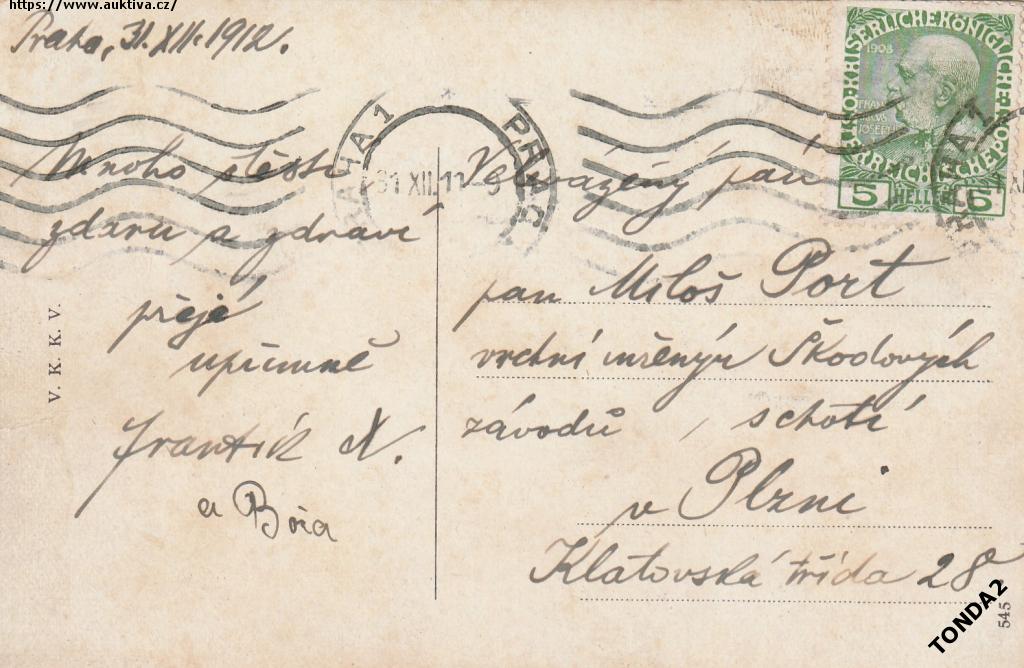 https://www.auktiva.cz/
Praha, 31.XII.1912.
Mnoho štěstí
zdaru a zdraví
přejé
upřímně
Frantík N.
a Boža
V. K. K. V.
PRAHA 1
31 XII.
PRAG
KAISERLICHE KÖNIGLICHE
ÖSTERREICHISCHE POST
1908
FRANCISCUS
JOSEPH I
5 HELLER 5
Velevážený pán
pan Miloš Port
vrchní inženýr Škodových
závodů, schotí
v Plzni
Klatovská třída 28
545
TONDA2